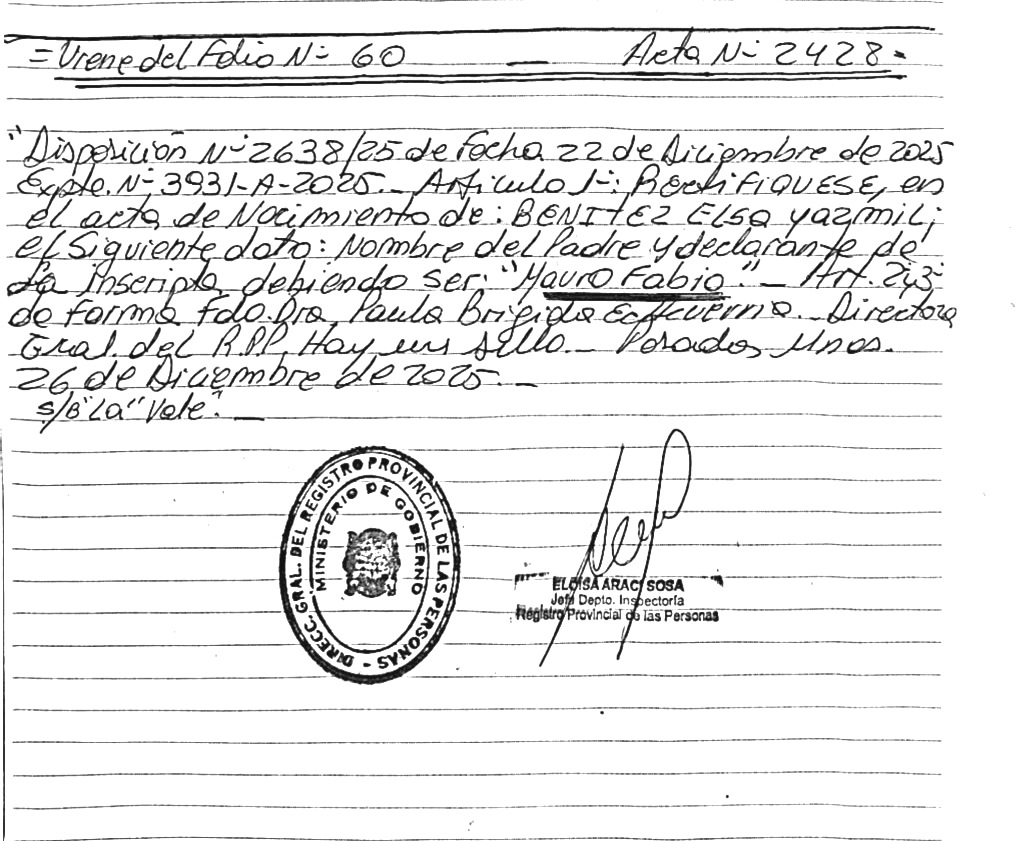 = Viene del Folio N- 60 — Acta N- 2428-
"Disposición N- 2638/25 de Fecha 22 de Diciembre de 2025
Expte. N- 3931-A-2025._ Artículo 1-: RECTIFIQUESE, en
el acta de Nacimiento de: BENITEZ Elsa Yazmil;
el Siguiente dato: Nombre del Padre y declarante de
La Inscripta debiendo ser: "Mauro Fabio"._ Art. 2y3-
de Forma Fdo. Dra. Paula Brigida Echeverria._ Directora
Gral. del R.P.P. Hay un Sello._ Posadas Mnes.
26 de Diciembre de 2025._
s/b "La" Vale"._
DIRECC. GRAL. DEL REGISTRO PROVINCIAL DE LAS PERSONAS -
MINISTERIO DE GOBIERNO
ELOISA ARACI SOSA
Jefa Depto. Inspectoría
Registro Provincial de las Personas